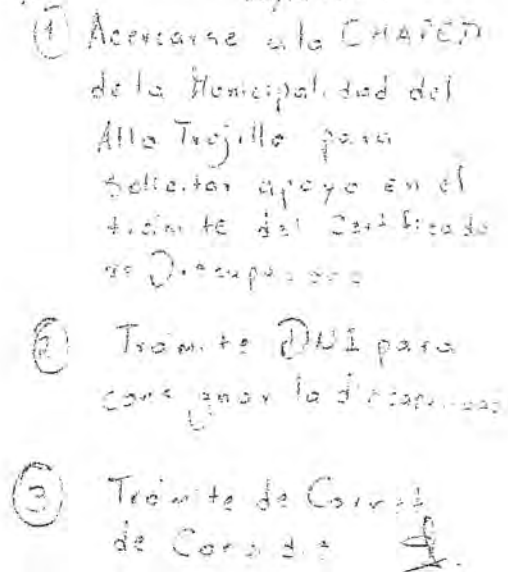 ① Acercarse a la OMAPED
de la Municipalidad del
Alto Trujillo para
Solicitar apoyo en el
trámite del Certificado
de Discapacidad
② Trámite DNI para
consignar la discapacidad
③ Trámite de Carnet
de Conadis